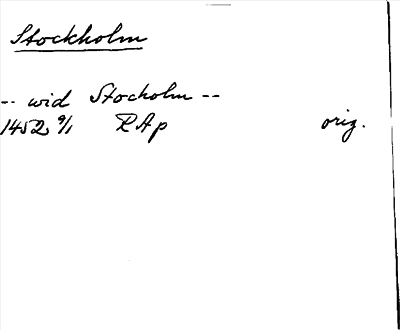 Stockholm
-- wid Stocholm --
1452 9/1 RAp orig.